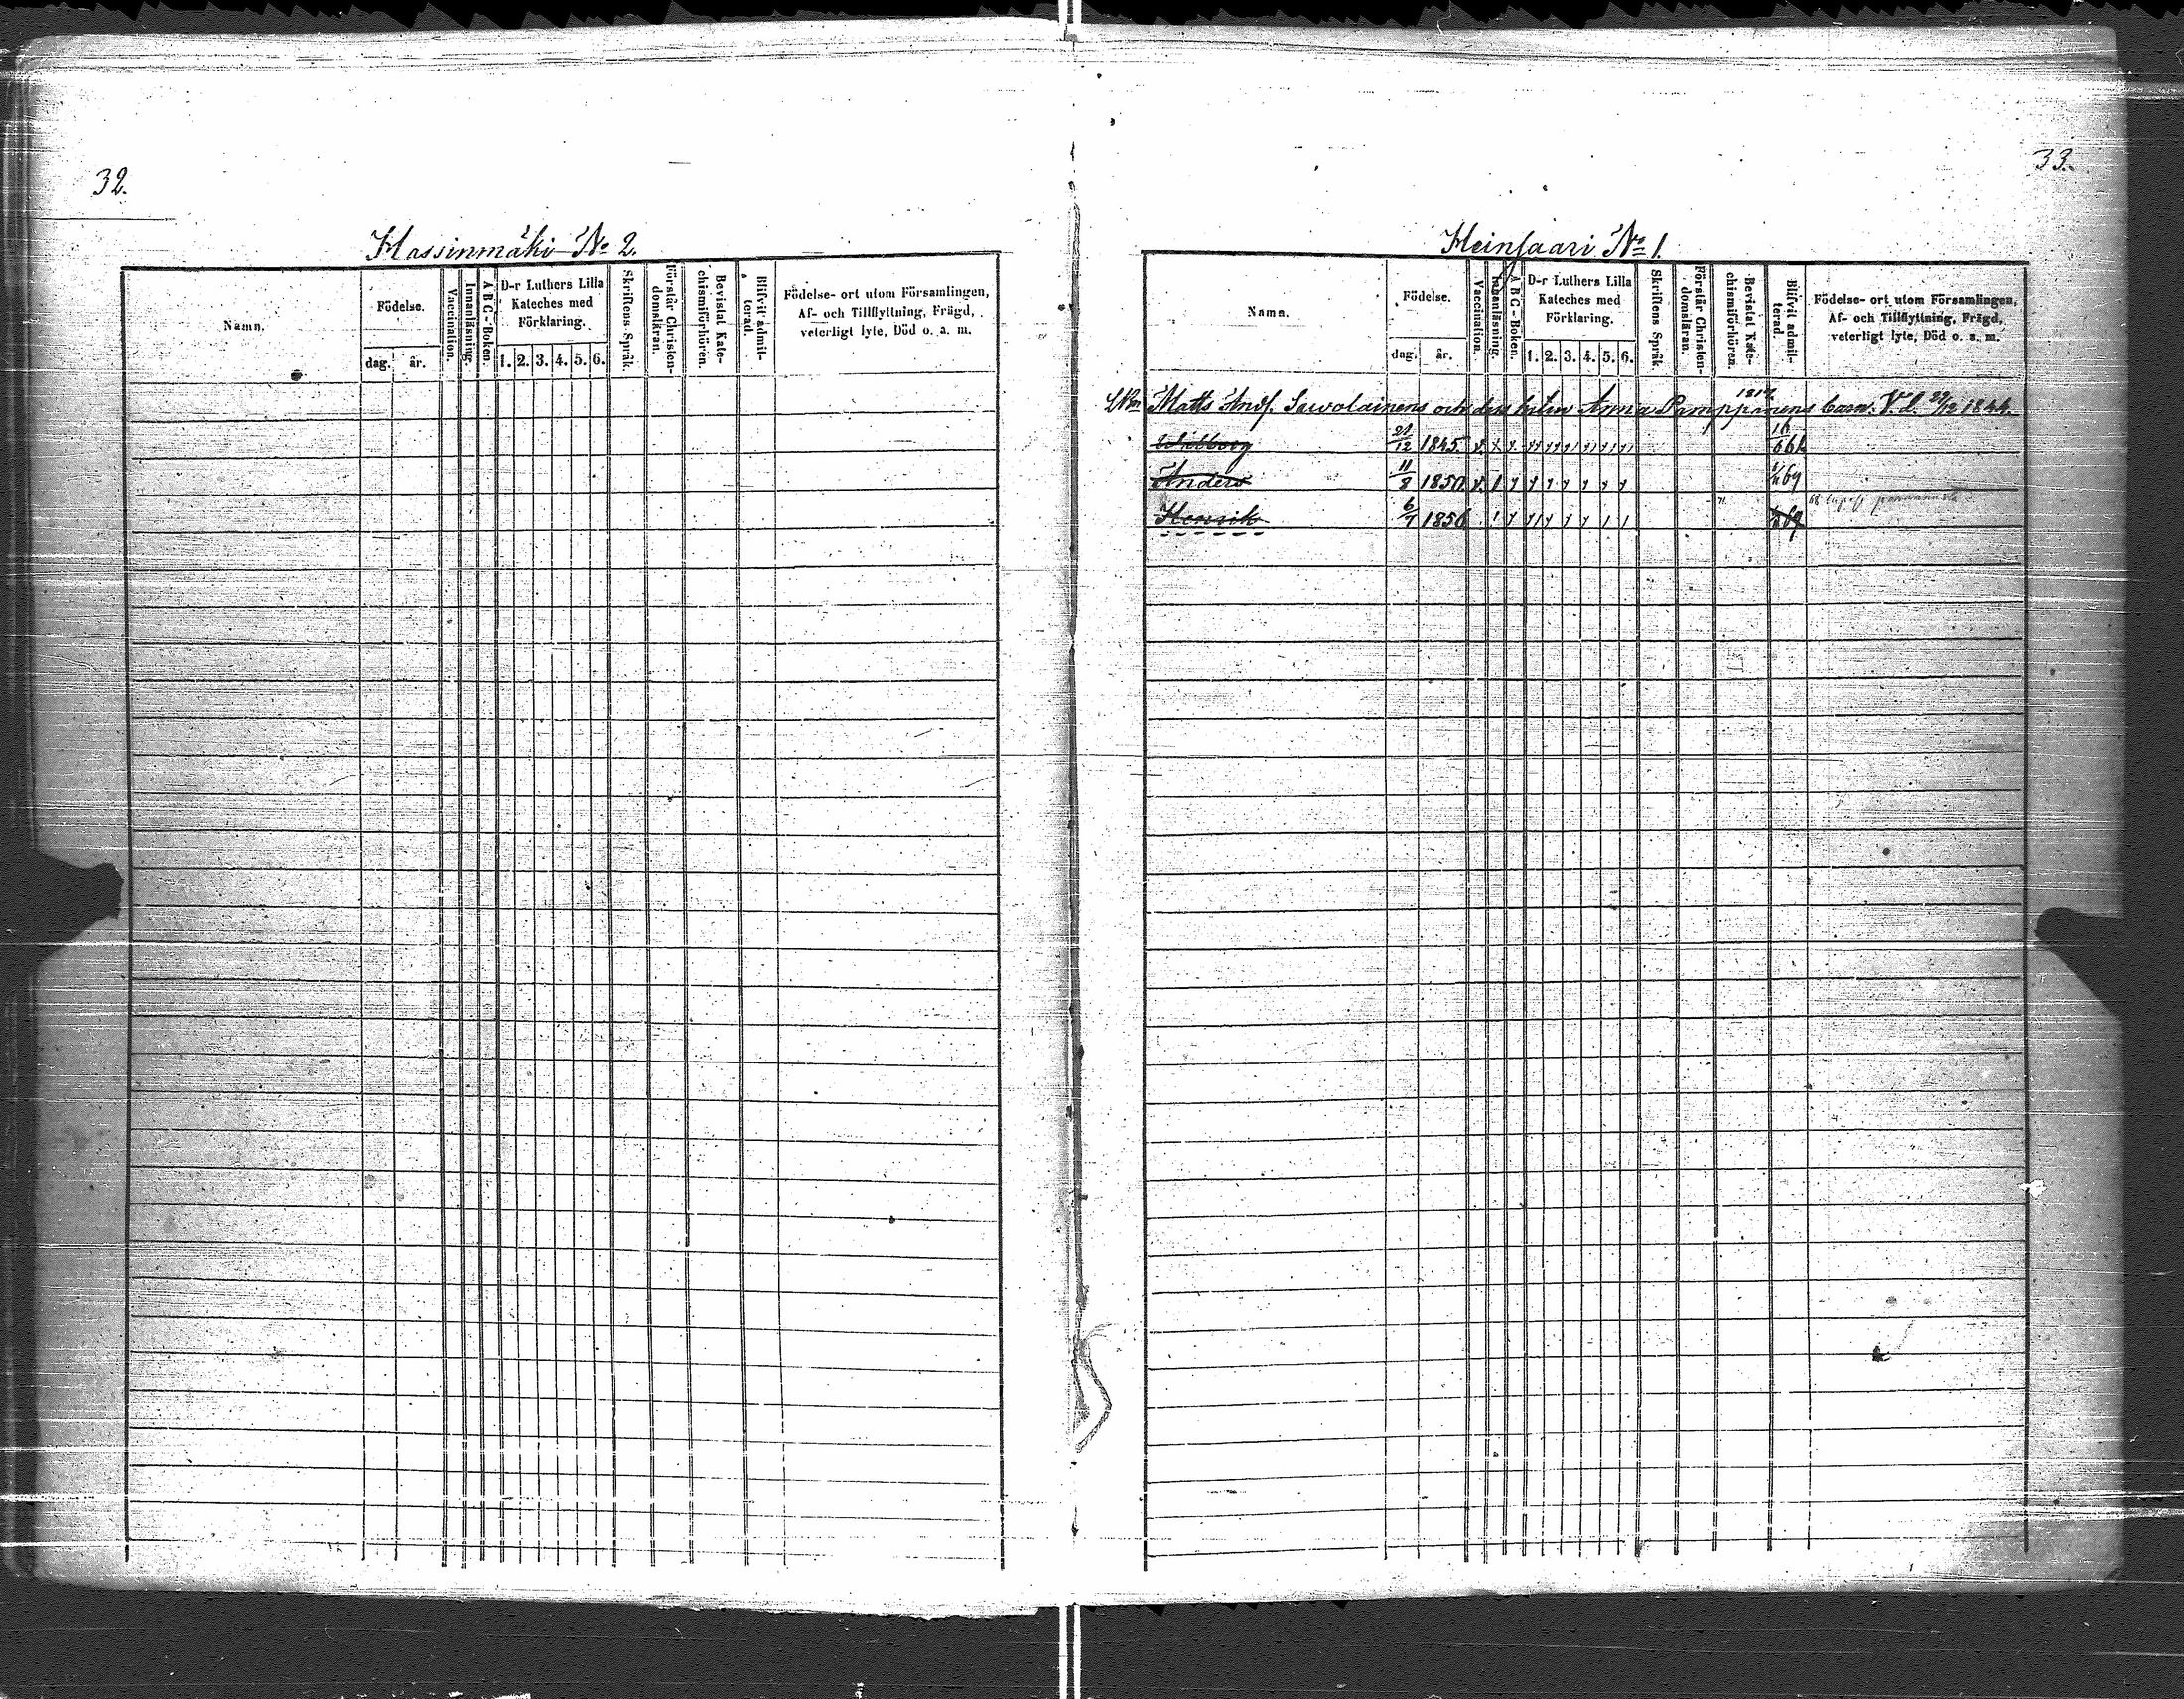 32.
Hassinmäki No 2.
Namn.
Födelse.
dag. år.
Vaccination.
Innanläsning.
A B C-Boken.
D-r Luthers Lilla
Kateches med
Förklaring.
1. 2. 3. 4. 5. 6.
Skriftens Språk.
Förstår Christen-
domsläran.
Bevistat Kate-
chismiförhören.
Blifvit admit-
terad.
Födelse- ort utom Församlingen,
Af- och Tillflyttning, Frägd,
veterligt lyte, Död o. a. m.
33.
Heinsaari No 1.
Namn.
Födelse.
dag. år.
Vaccination.
Innanläsning.
A B C-Boken.
D-r Luthers Lilla
Kateches med
Förklaring.
1. 2. 3. 4. 5. 6.
Skriftens Språk.
Förstår Christen-
domsläran.
Bevistat Kate-
chismiförhören.
Blifvit admit-
terad.
Födelse- ort utom Församlingen,
Af- och Tillflyttning, Frägd,
veterligt lyte, Död o. a. m.
Matts Ands. Sawolainens och dess hustru Anna Pamppunens barn. V. d. 29/12 1844.
Wilborg 21/12 1845.
Anders 11/8 1850
Henrik 6/7 1856